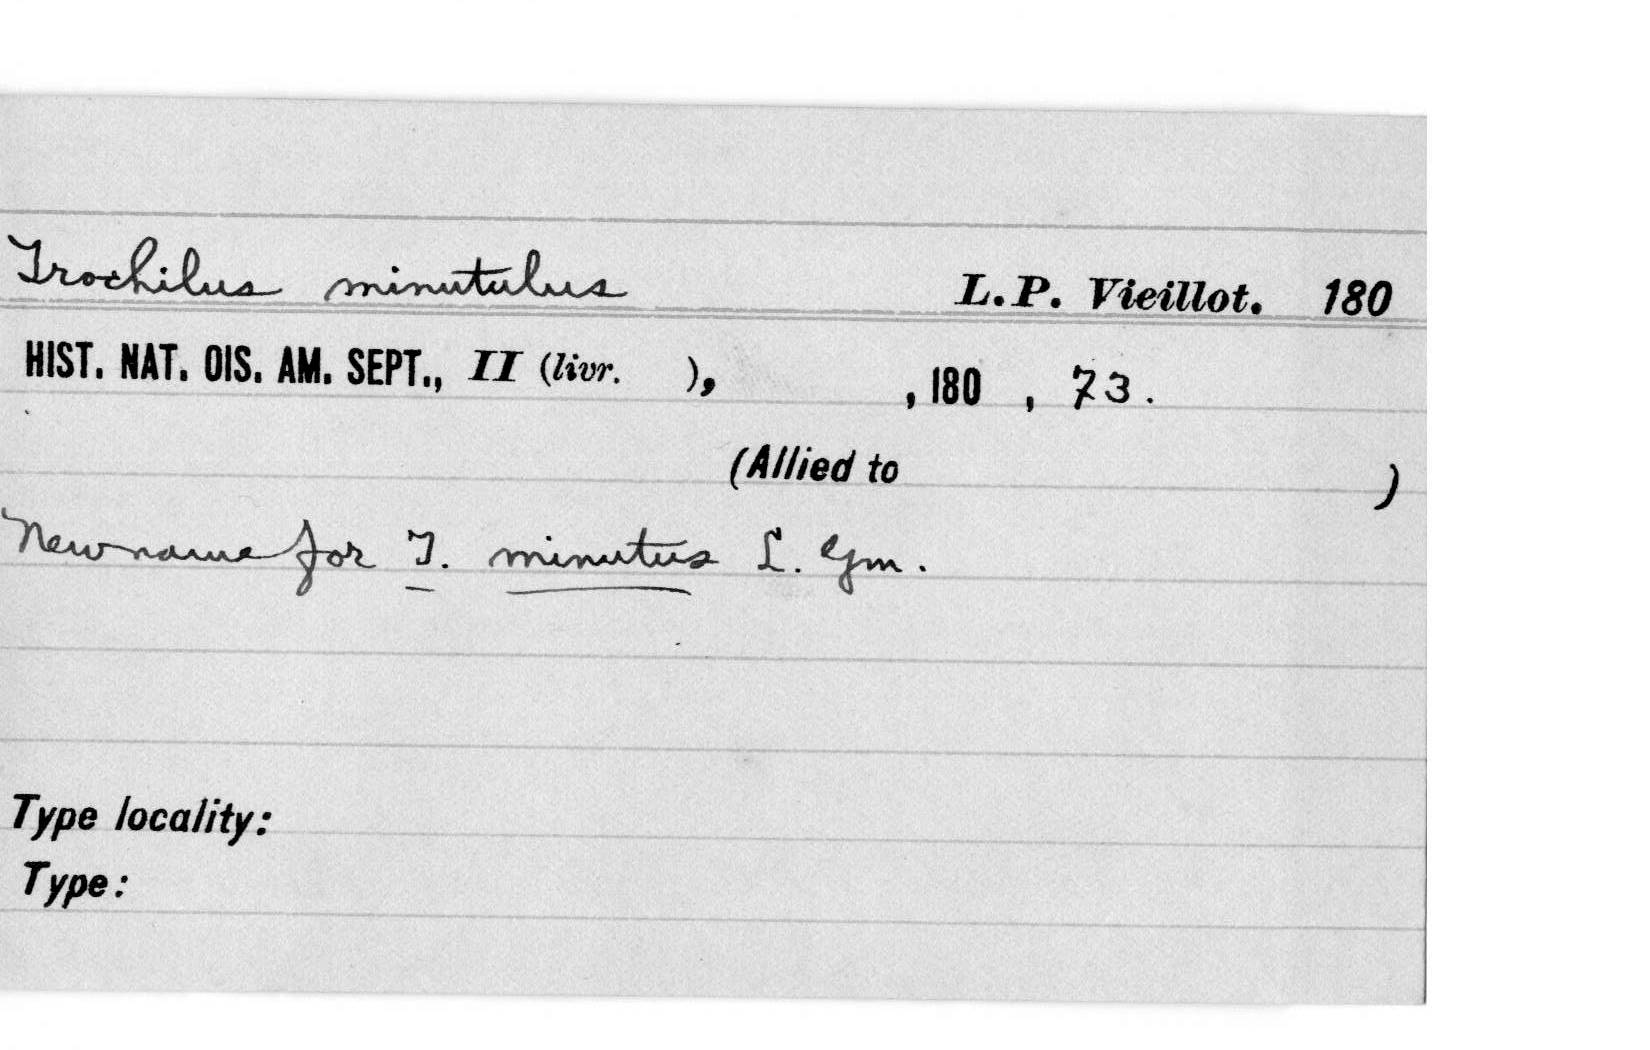 Trochilus minutulus L.P. Vieillot. 180
HIST. NAT. OIS. AM. SEPT., II (livr. ), , 180 , 73.
(Allied to )
New name for T. minutus L. Gm.
Type locality:
Type: